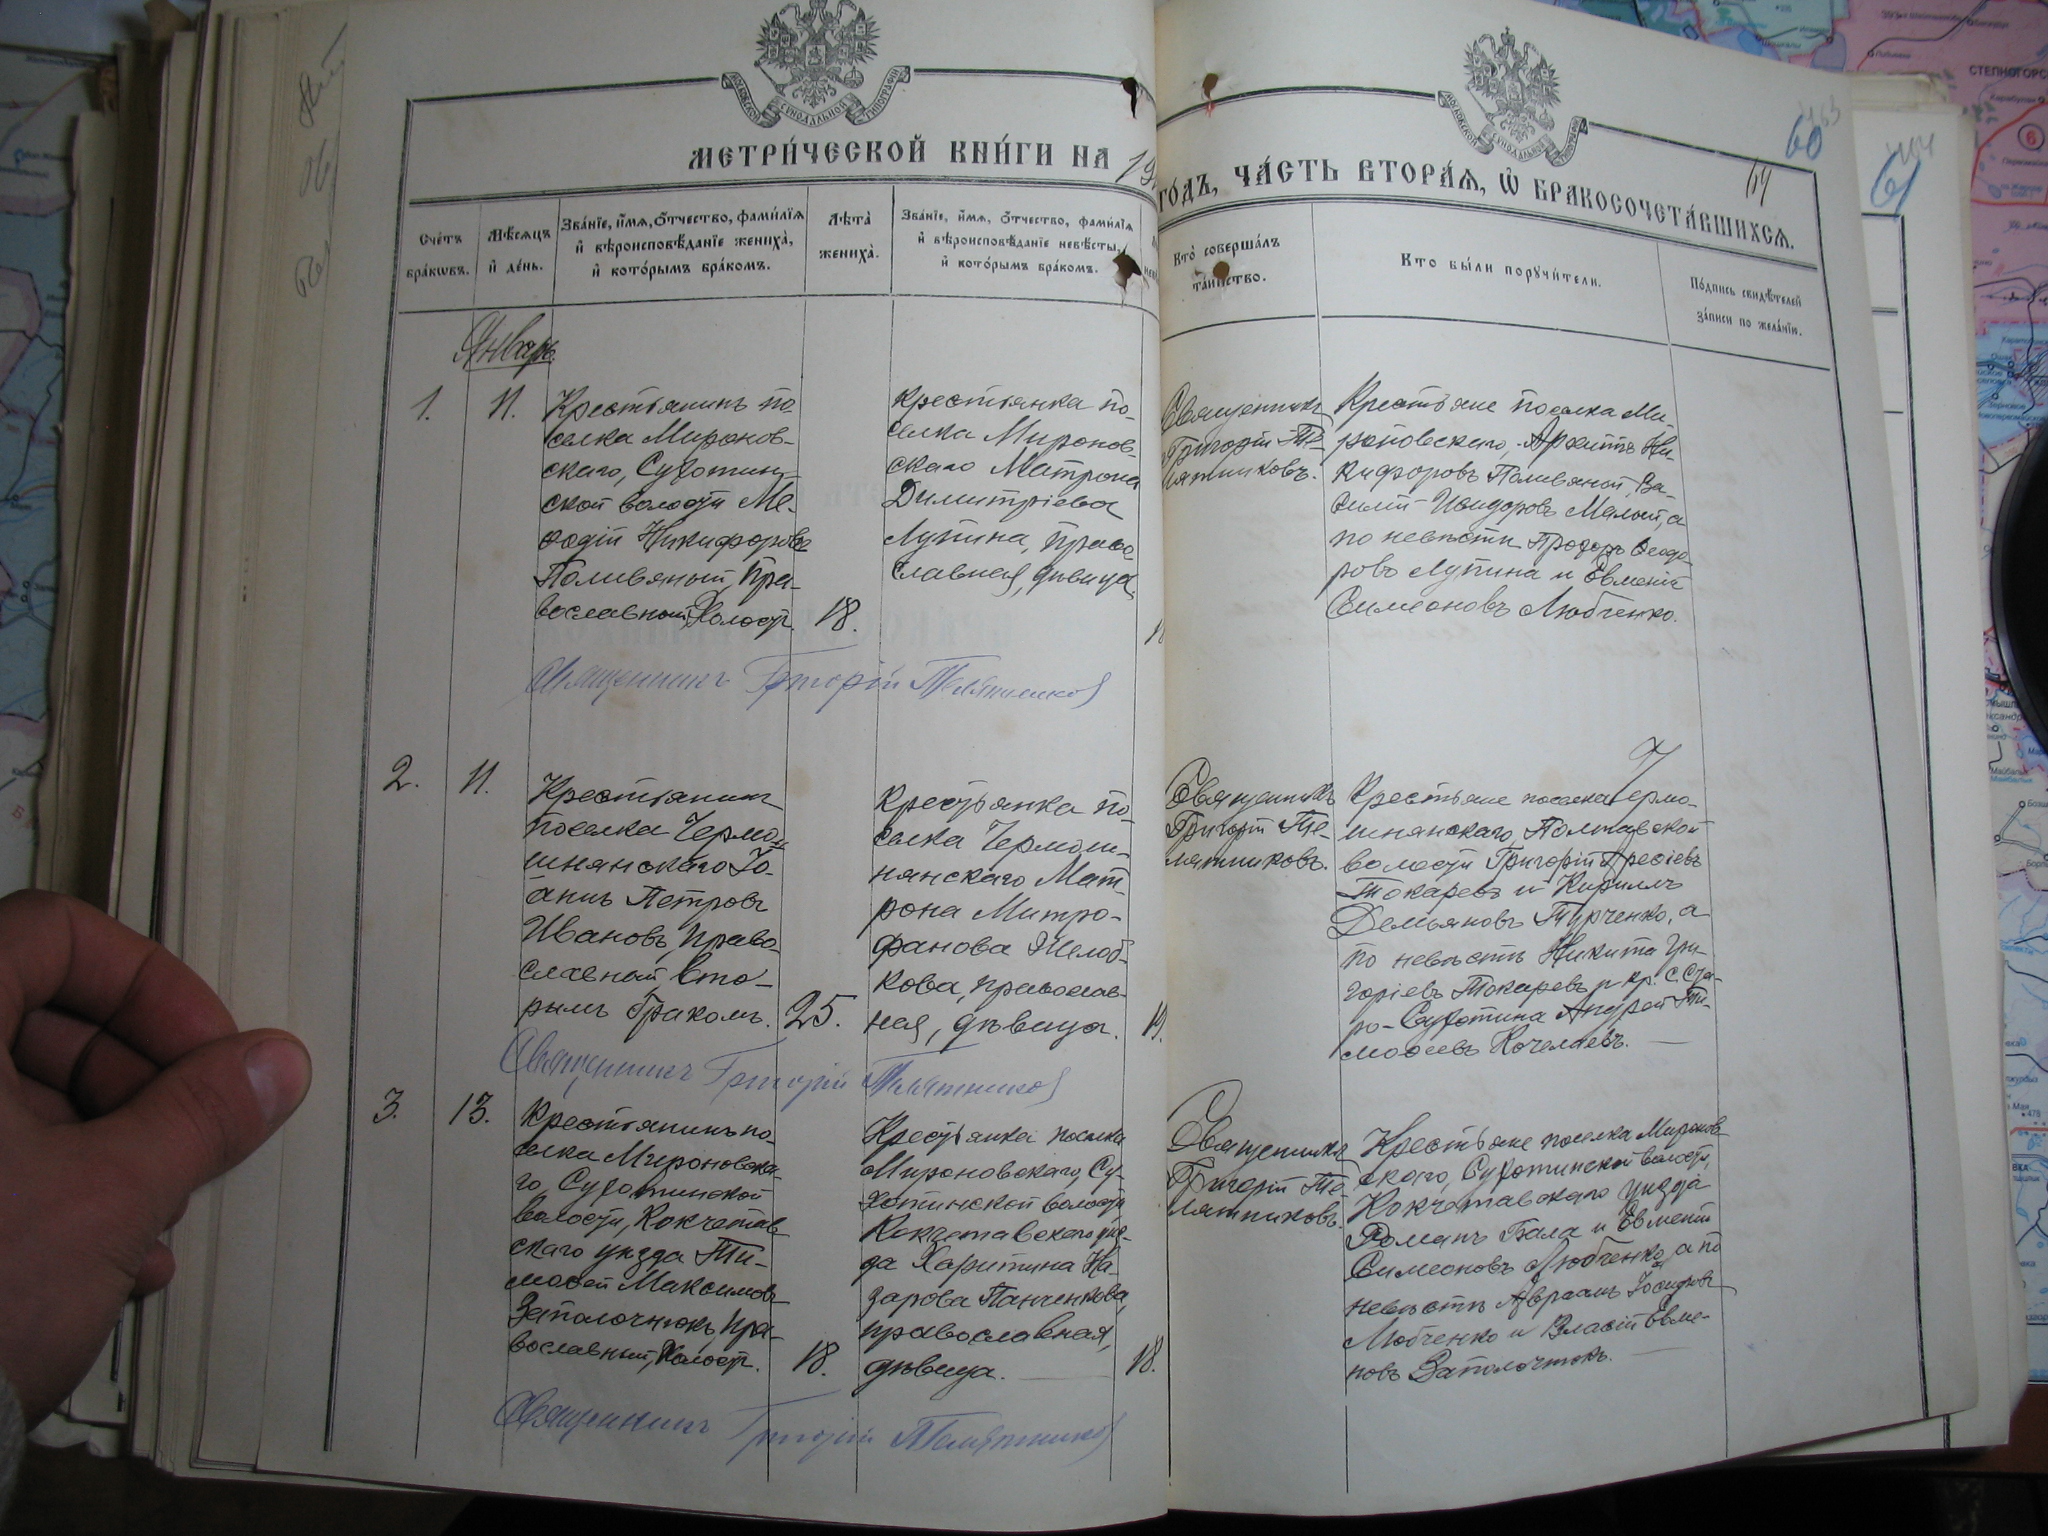 МЕТРИЧЕСКОЙ КНИГИ НА 19
ГОДЪ, ЧАСТЬ ВТОРАЯ, Ѡ БРАКОСОЧЕТАВШИХСЯ.
60
Счетъ браковъ.
Мѣсяцъ и день.
Званіе, имя, отчество, фамилія
и вѣроисповѣданіе жениха,
и которымъ бракомъ.
Лѣта
жениха.
Званіе, имя, отчество, фамилія
и вѣроисповѣданіе невѣсты,
и которымъ бракомъ.
Кто совершалъ
таинство.
Кто были поручители.
Подпись свидѣтелей
записи по желанію.
Январь
1.
11.
Крестьянинъ по-
селка Миронов-
скаго, Сухотин-
ской волости Ме-
ѳодій Никифоровъ
Поливяный, пра-
вославный, холостъ.
18.
Крестьянка по-
селка Миронов-
скаго Матрона
Димитріева
Лупина, право
славная, дѣвица.
Священникъ
Григорій Те-
лятниковъ.
Крестьяне поселка Ми-
роновскаго, Архиппъ Ни-
кифоровъ Поливяной, Ва-
силій Исидоровъ Малый, а
по невѣсти Прохоръ Ѳеодо-
ровъ Лупина и Евменій
Симеоновъ Любченко.
Священникъ Григорій Телятников
2.
11.
Крестьянинъ
поселка Чермо-
шнянскаго Іо-
аннъ Петровъ
Ивановъ, право-
славный, вто-
рымъ бракомъ.
25.
Крестьянка по-
селка Чермош-
нянскаго Мат-
рона Митро-
фанова Желоб-
кова, православ-
ная, дѣвица.
19.
Священникъ
Григорій Те-
лятниковъ.
Крестьяне поселка Чермо-
шнянскаго, Полтавской
волости Григорій
Токаревъ и Кириллъ
Демьяновъ Турченко, а
по невѣстѣ Никита Гри-
горіевъ Токаревъ и кр. с. Ста-
ро-Сухотина Андрей Ти-
моѳеевъ Кочелаевъ.
Священникъ Григорій Телятников
3.
13.
Крестьянинъ по-
селка Мироновска-
го, Сухотинской
волости, Кокчетав
скаго уѣзда Ти-
моѳей Максимовъ
Заполочнюкъ, пра-
вославный, холостъ.
18.
Крестьянка поселка
Мироновскаго, Су-
хотинской волости
Кокчетавскаго уѣз-
да Харитина На-
зарова Панченкова,
православная,
дѣвица.
18.
Священникъ
Григорій Те-
лятниковъ.
Крестьяне поселка Миронов
скаго, Сухотинской волости,
Кокчетавскаго уѣзда
Романъ Бала и Евменій
Симеоновъ Любченко, а по
невѣстѣ Авраамъ Іосифовъ
Любченко и Власій Евме-
новъ Заполочнюкъ.
Священникъ Григорій Телятников